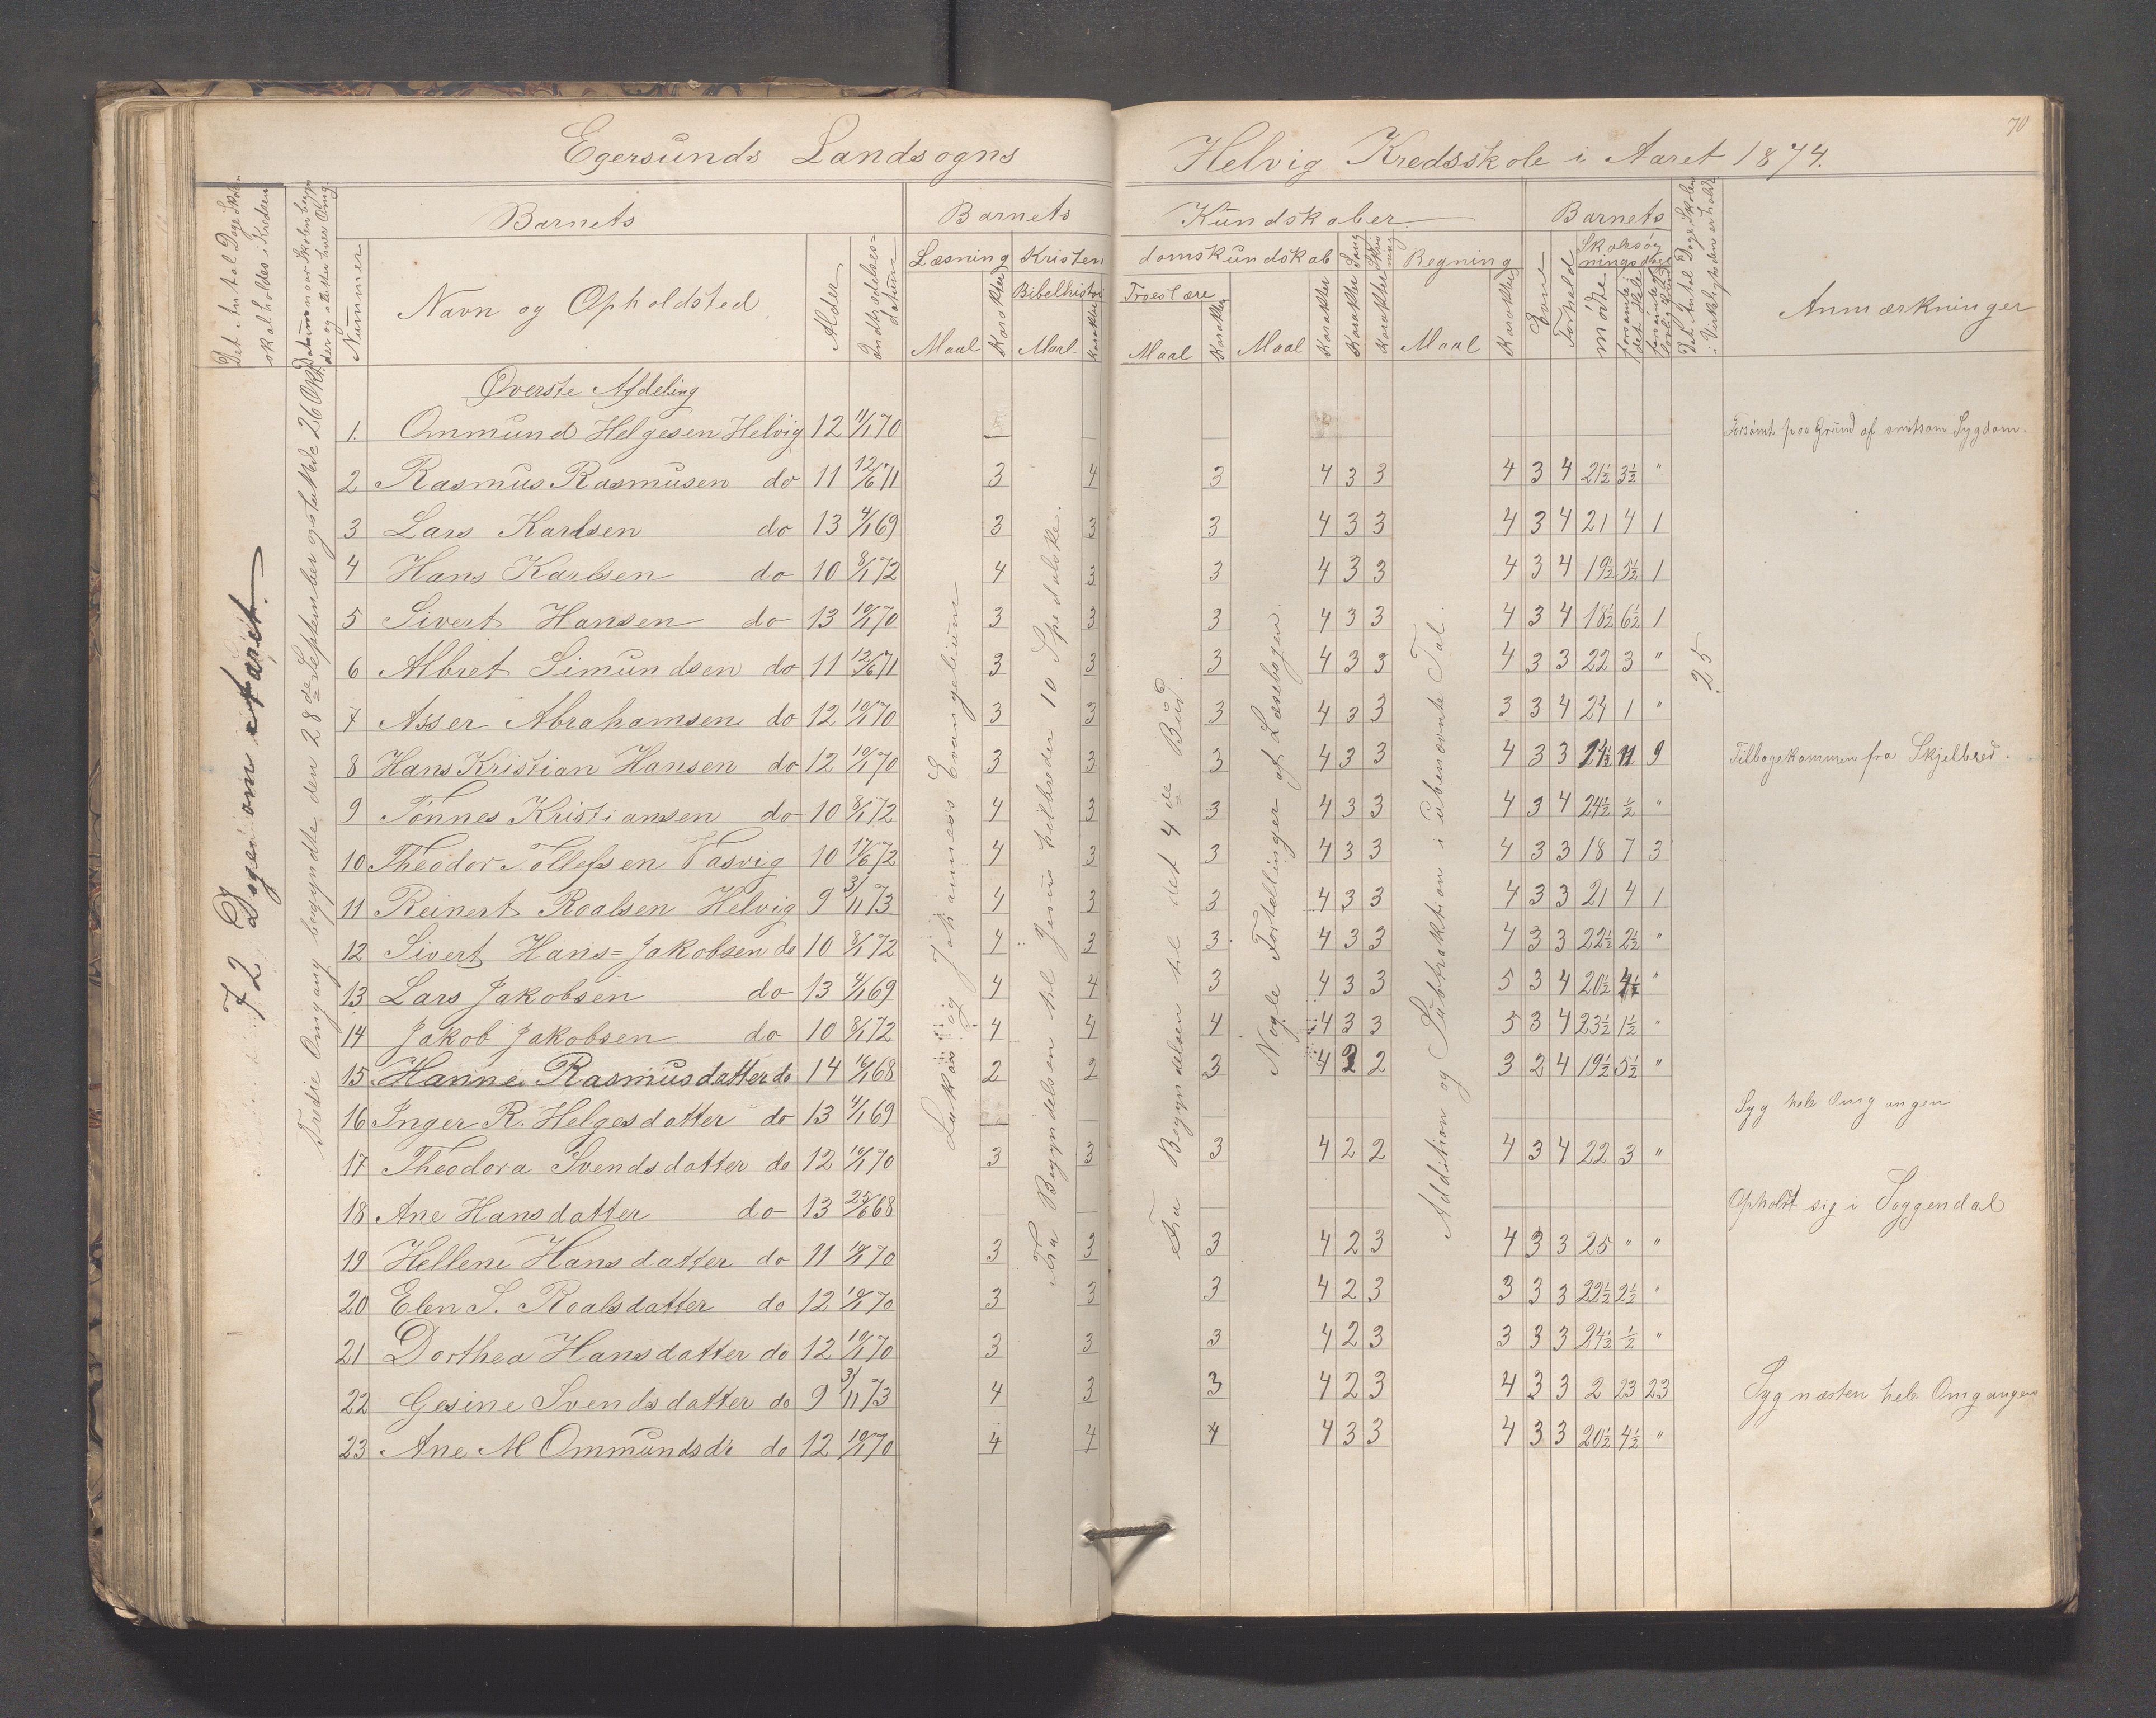 70
Egersunds Landsogns Helvig Kredsskole i Aaret 1874.
Det Antal Dage Skolen skal holdes i Kredsen
Datum naar Skolen begynder og slutter hver Omg.
Barnets
Nummer
Navn og Opholdsted
Alder
Indtrædelsesdatum
Barnets Kundskaber
Læsning Kristendomskundskab Sang Skrivning Regning
Bibelhistor Troeslære
Maal Karakter Maal Karakter Maal Karakter Maal Karakter Karakter Karakter Maal Karakter
Barnets
Evne
Forhold
Skolesøgningsdage
mødte
forsømte i det Hele
forsømte af lovlig Grund
Det Antal Dage Skolen i Virkeligheden er holdt
Anmærkninger
72 Dage om Aaret.
Tredie Omgang begyndte den 28de September og sluttede 26 Okt.
Lukas og Johannes's Evangelium
Fra Begyndelsen til Jesus helbreder 10 Spedalske.
Fra Begyndelsen til det 4de Bud.
Nogle Fortællinger af Læsebogen.
Addition og Subtraktion i ubenævnte Tal.
25
Øverste Afdeling
1. Ommund Helgesen Helvig 12 11/1 70 Forsømt paa Grund af smitsom Sygdom.
2 Rasmus Rasmusen do 11 12/6 71 3 4 3 4 3 3 4 3 4 21½ 3½ "
3 Lars Karlsen do 13 4/1 69 3 3 3 4 3 3 4 3 4 21 4 1
4 Hans Karlsen do 10 8/1 72 4 3 3 4 3 3 4 3 4 19½ 5½ 1
5 Sivert Hansen do 13 10/1 70 3 3 3 4 3 3 4 3 4 18½ 6½ 1
6 Albret Simundsen do 11 12/6 71 3 3 3 4 3 3 4 3 3 22 3 "
7 Asser Abrahamsen do 12 10/1 70 3 3 3 4 3 3 3 3 4 24 1 "
8 Hans Kristian Hansen do 12 10/1 70 3 3 3 4 3 3 4 3 3 11 9 Tilbagekommen fra Skjelbred.
9 Tønnes Kristiansen do 10 8/1 72 4 3 3 4 3 3 4 3 4 24½ ½ "
10 Theodor Tollefsen Vasvig 10 17/6 72 4 3 3 4 3 3 4 3 3 18 7 3
11 Reinert Roalsen Helvig 9 3/11 73 4 3 3 4 3 3 4 3 3 21 4 1
12 Sivert Hans=Jakobsen do 10 8/1 72 4 3 3 4 3 3 4 3 3 22½ 2½ "
13 Lars Jakobsen do 13 4/1 69 4 4 3 4 3 3 5 3 4 20½ 4½ "
14 Jakob Jakobsen do 10 8/1 72 4 4 4 4 3 3 5 3 4 23½ 1½ "
15 Hanne Rasmusdatter do 14 16/1 68 2 2 3 4 2 2 3 2 4 19½ 5½ "
16 Inger R. Helgesdatter do 13 4/1 69 Syg hele Omgangen
17 Theodora Svendsdatter do 12 10/1 70 3 3 3 4 2 2 4 3 4 22 3 "
18 Ane Hansdatter do 13 25/6 68 Opholdt sig i Soggendal
19 Hellene Hansdatter do 11 10/1 70 3 3 3 4 2 3 4 3 3 25 " "
20 Elen S. Roalsdatter do 12 10/1 70 3 3 3 4 2 3 3 3 3 22½ 2½ "
21 Dorthea Hansdatter do 12 10/1 70 3 3 3 4 2 3 3 3 3 24½ ½ "
22 Gesine Svendsdatter do 9 3/11 73 4 3 3 4 2 3 4 3 3 2 23 23 Syg næsten hele Omgangen
23 Ane M Ommundsdr do 12 10/1 70 4 4 4 4 3 3 4 3 3 20½ 4½ "